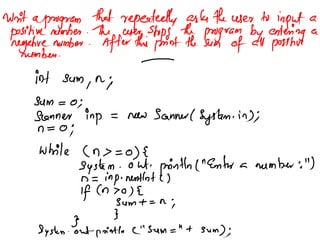 Writ a program that repeatedly asks the user to input a
positive number. The user stops the program by entering a
negative number. After this print the sum of all positive
number.
int sum, n;
sum = 0;
Scanner inp = new Scanner(System.in);
n = 0;
while (n >= 0) {
System.out.println("Enter a number:")
n = inp.nextInt()
if (n > 0) {
sum += n;
}
}
System.out.println("Sum = " + sum);